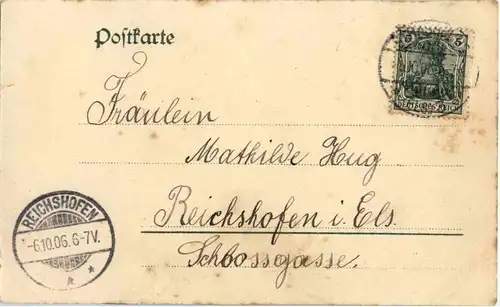 Postkarte
5 5
DEUTSCHES REICH
Fräulein
Mathilde Hug
Reichshofen i. Els.
Schlossgasse.
REICHSHOFEN
-6.10.06.6-7V.
* *